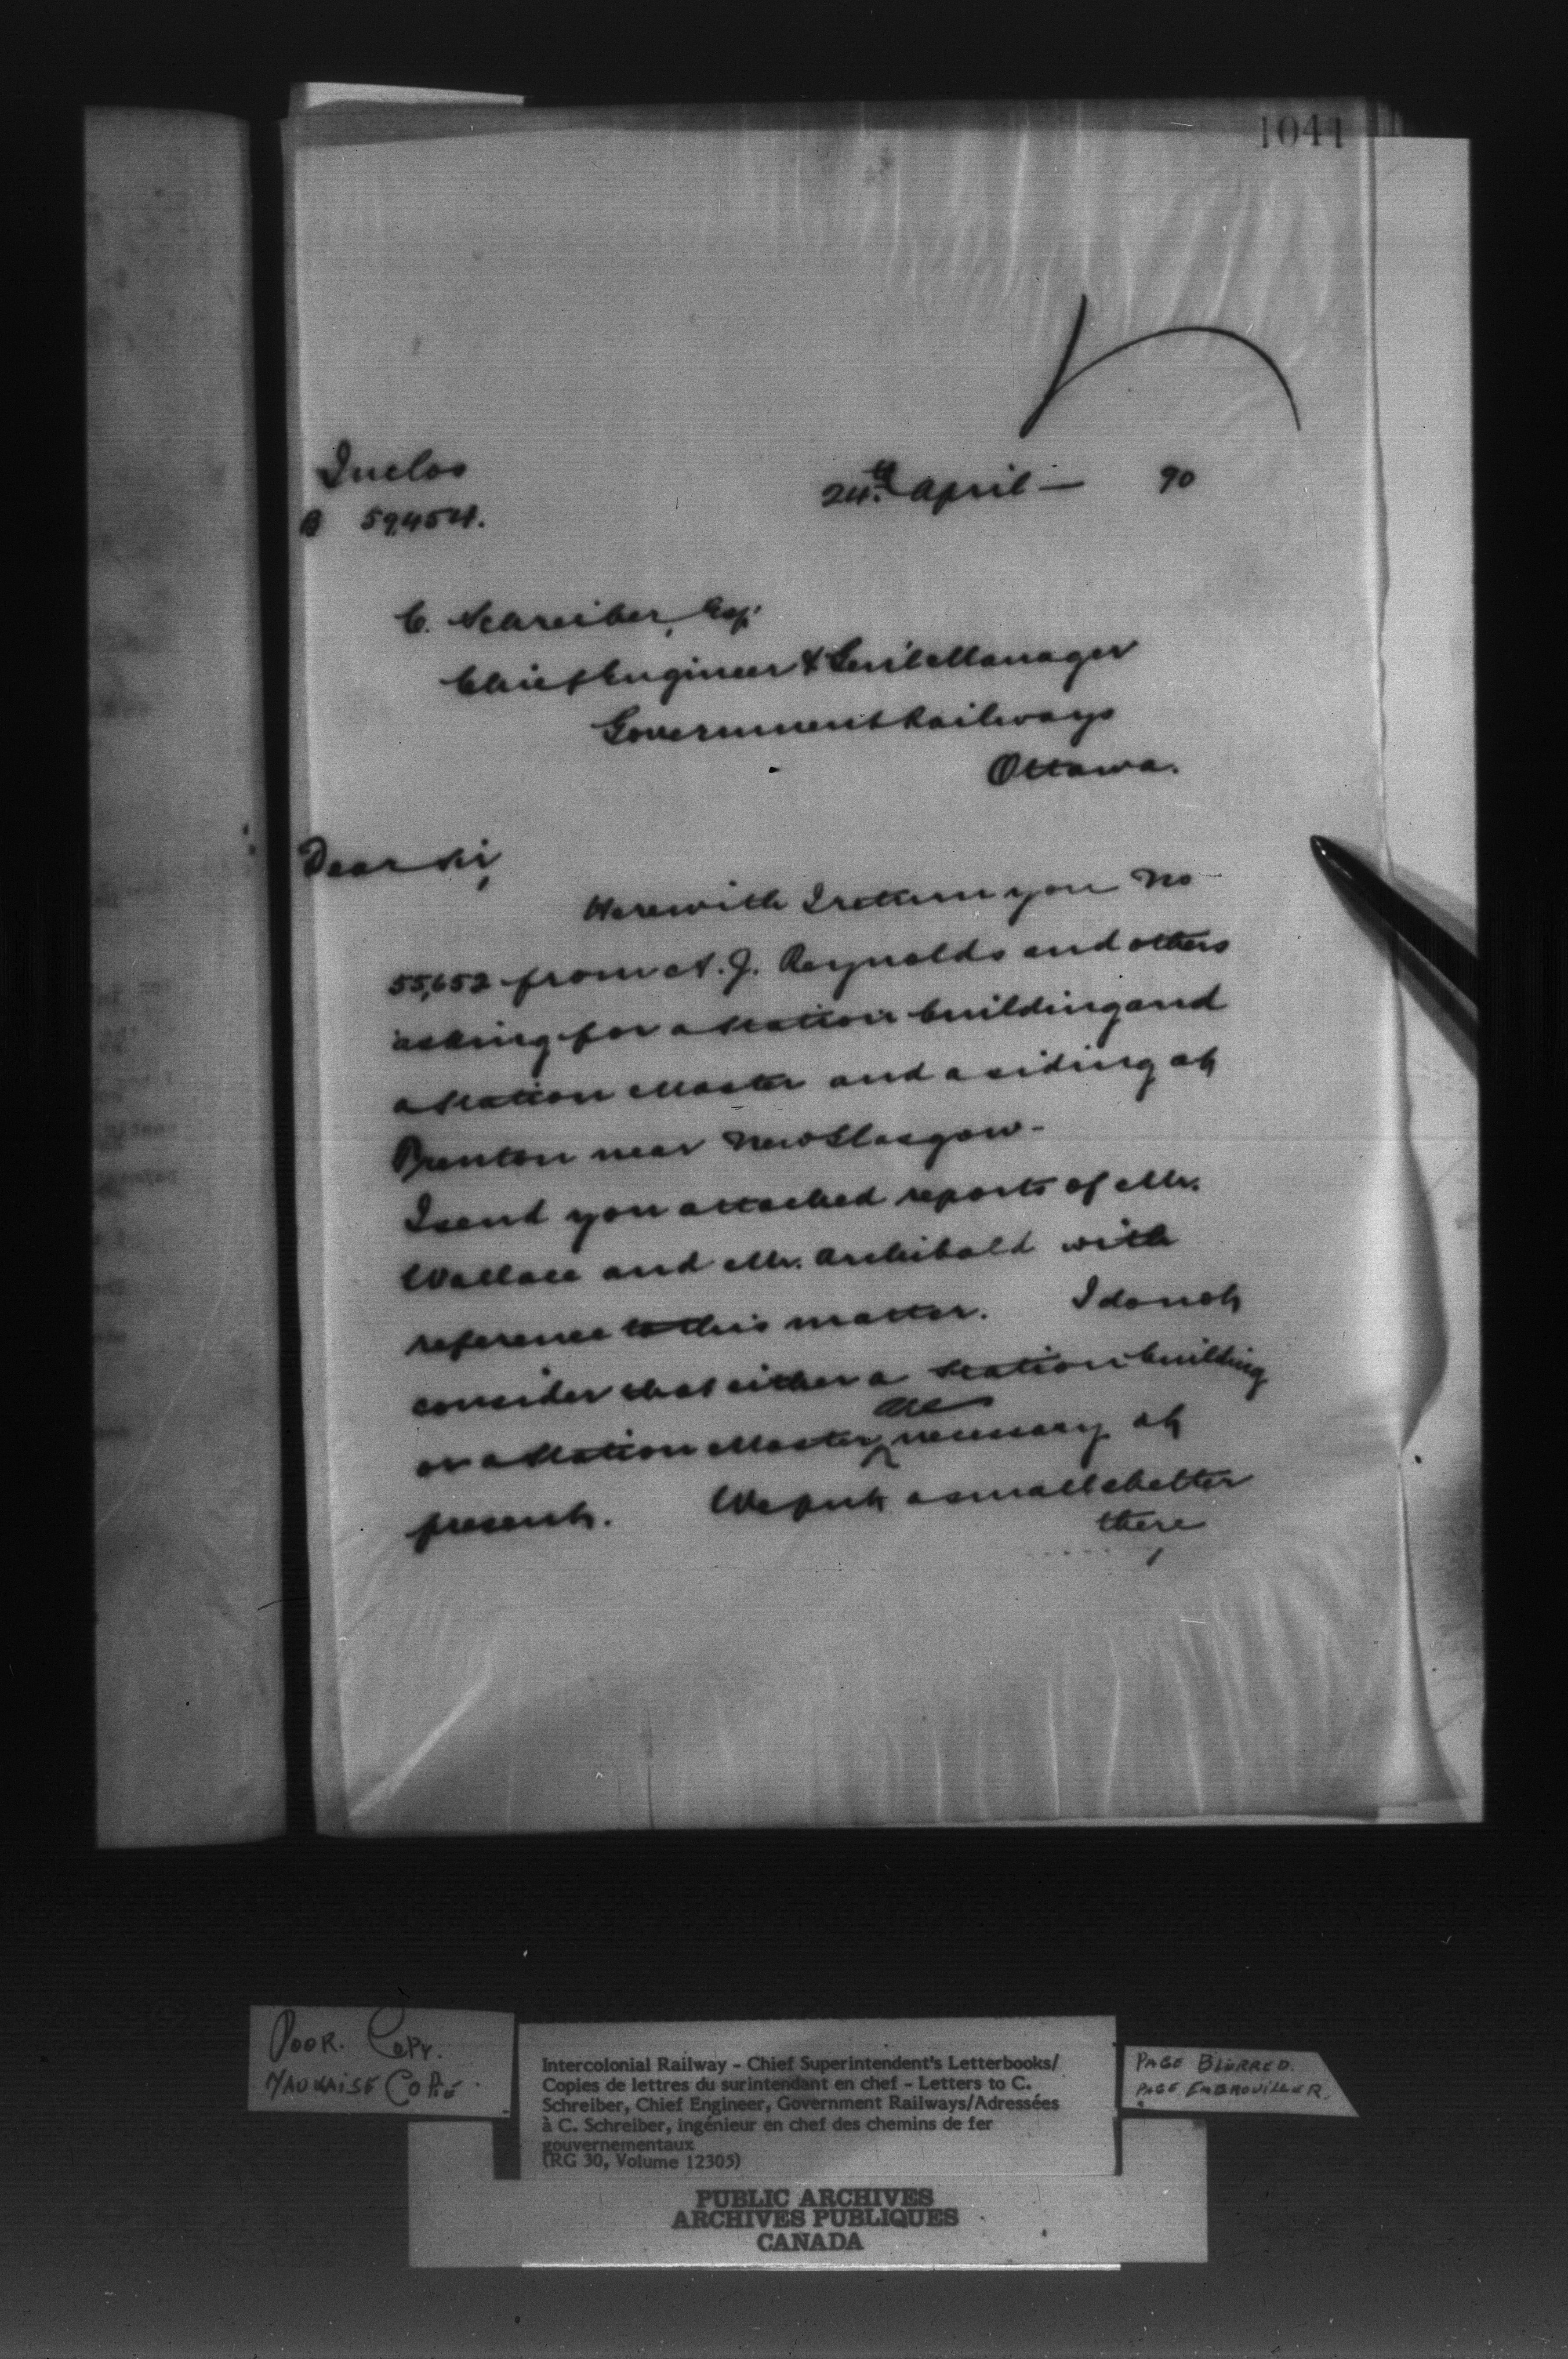 1041
Inclos
B 59,454.
24th April — 90
C. Schreiber, Esq.
Chief Engineer & Genl Manager
Government Railways
Ottawa.
Dear Sir,
Herewith I return you No
55,652 from A. J. Reynolds and others
asking for a Station building and
a Station Master and a siding at
Brenton near New Glasgow -
I send you attached reports of Mr.
Wallace and Mr. Archibald with
reference to this matter. I do not
consider that either a Station building
or a Station Master are necessary at
present. We put a small shelter
there
POOR. COPY.
MAUVAISE COPIE.
Intercolonial Railway - Chief Superintendent's Letterbooks/
Copies de lettres du surintendant en chef - Letters to C.
Schreiber, Chief Engineer, Government Railways/Adressées
à C. Schreiber, ingénieur en chef des chemins de fer
gouvernementaux
(RG 30, Volume 12305)
PAGE BLURRED.
PAGE EMBROUILLER.
PUBLIC ARCHIVES
ARCHIVES PUBLIQUES
CANADA